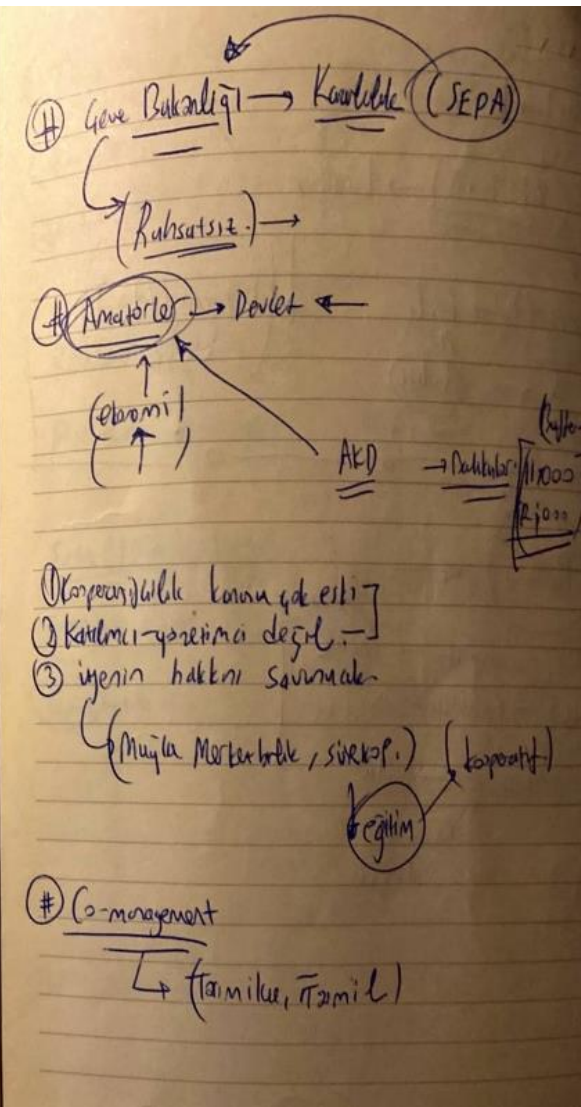 # Çevre Bakanlığı → Kararlılık (SEPA)
(Ruhsatsız.) →
# Amatörler → Devlet ←
(ekonomi)
AKD → Dalıkılar
11,000
① Kooperatifçilik kanunu çok eski
② Katılımcı-yönetimci değil.
③ üyenin hakkını savunmak.
(Muğla Merkezbirlik, SÜRKOP.) (kooperatif)
eğitim
# Co-management